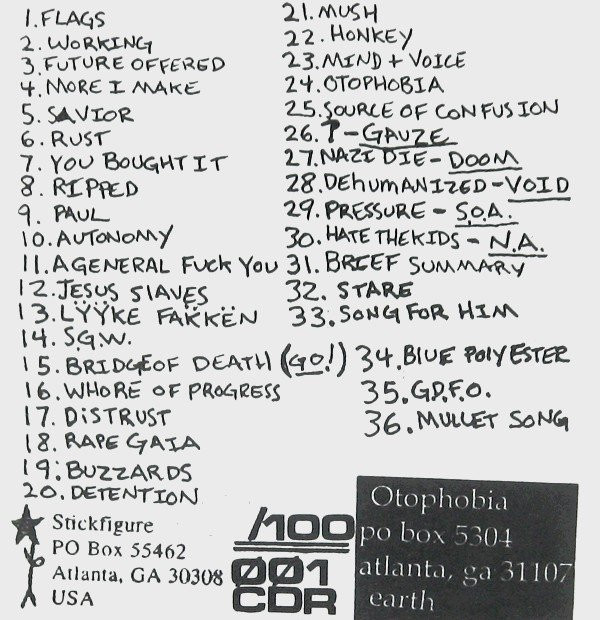 1. FLAGS
2. WORKING
3. FUTURE OFFERED
4. MORE I MAKE
5. SAVIOR
6. RUST
7. YOU BOUGHT IT
8. RIPPED
9. PAUL
10. AUTONOMY
11. A GENERAL FUCK YOU
12. JESUS SLAVES
13. LŸŸKE FAKKËN
14. S.G.W.
15. BRIDGE OF DEATH (GO!)
16. WHORE OF PROGRESS
17. DISTRUST
18. RAPE GAIA
19. BUZZARDS
20. DETENTION
21. MUSH
22. HONKEY
23. MIND + VOICE
24. OTOPHOBIA
25. SOURCE OF CONFUSION
26. ? - GAUZE
27. NAZI DIE - DOOM
28. DEHUMANIZED - VOID
29. PRESSURE - S.O.A.
30. HATE THE KIDS - N.A.
31. BRIEF SUMMARY
32. STARE
33. SONG FOR HIM
34. BLUE POLYESTER
35. G.D.F.O.
36. MULLET SONG
Stickfigure
PO Box 55462
Atlanta, GA 30308
USA
/100
001
CDR
Otophobia
po box 5304
atlanta, ga 31107
earth